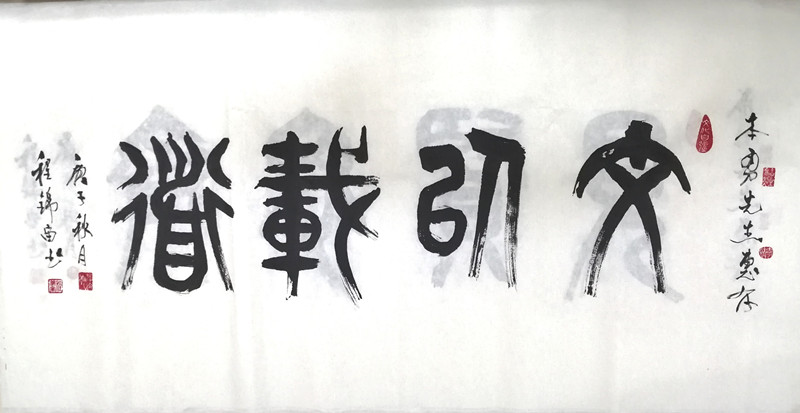 本勇先生惠存
文以載道
庚子秋月
程錦